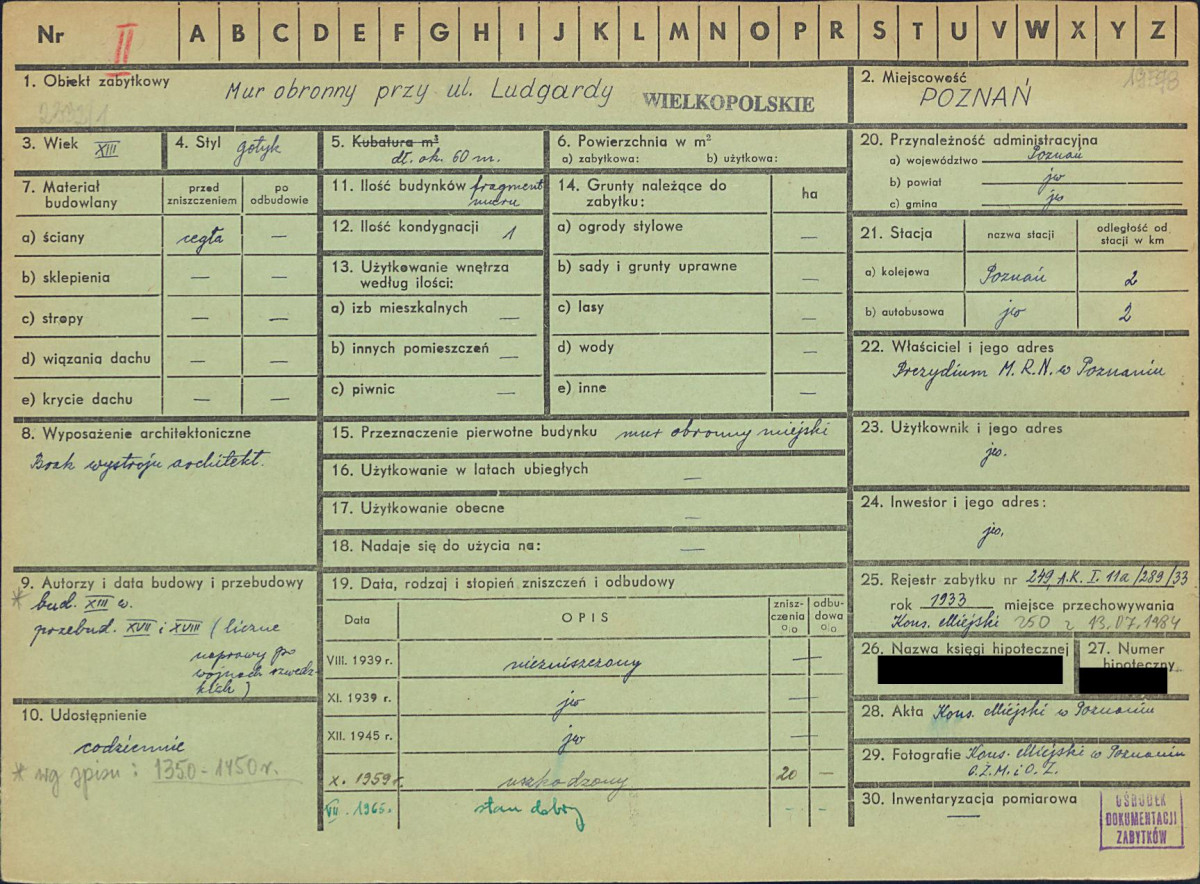 Nr II A B C D E F G H I J K L M N O P R S T U V W X Y Z
1. Obiekt zabytkowy Mur obronny przy ul. Ludgardy WIELKOPOLSKIE
2. Miejscowość
POZNAŃ
3. Wiek XIII
4. Styl gotyk
5. Kubatura m³
dł. ok. 60 m.
6. Powierzchnia w m²
a) zabytkowa: b) użytkowa:
7. Materiał budowlany
przed zniszczeniem
po odbudowie
a) ściany cegła —
b) sklepienia — —
c) stropy — —
d) wiązania dachu — —
e) krycie dachu — —
8. Wyposażenie architektoniczne
Brak wystroju architekt.
9. Autorzy i data budowy i przebudowy
* bud. XIII w.
przebud. XVII i XVIII (liczne
naprawy po
wojnach szwedz-
kich)
10. Udostępnienie
codziennie
* wg spisu: 1350-1450 r.
11. Ilość budynków fragment
muru
12. Ilość kondygnacji 1
13. Użytkowanie wnętrza
według ilości:
a) izb mieszkalnych —
b) innych pomieszczeń —
c) piwnic —
14. Grunty należące do
zabytku:
ha
a) ogrody stylowe —
b) sady i grunty uprawne —
c) lasy —
d) wody —
e) inne —
15. Przeznaczenie pierwotne budynku mur obronny miejski
16. Użytkowanie w latach ubiegłych —
17. Użytkowanie obecne —
18. Nadaje się do użycia na: —
19. Data, rodzaj i stopień zniszczeń i odbudowy
Data OPIS zniszczenia o/o odbudowa o/o
VIII. 1939 r. niezniszczony —
XI. 1939 r. jw —
XII. 1945 r. jw —
X. 1959 r. uszkodzony 20 —
VII. 1965. stan dobry - -
20. Przynależność administracyjna
a) województwo Poznań
b) powiat jw
c) gmina jw
21. Stacja
nazwa stacji
odległość od
stacji w km
a) kolejowa Poznań 2
b) autobusowa jw 2
22. Właściciel i jego adres
Prezydium M. R. N. w Poznaniu
23. Użytkownik i jego adres
jw.
24. Inwestor i jego adres:
jw.
25. Rejestr zabytku nr 249, A.K. I. 11a/289/33
rok 1933 miejsce przechowywania
Kons. Miejski 250 z 13.07.1984
26. Nazwa księgi hipotecznej
27. Numer
hipoteczny
28. Akta Kons. Miejski w Poznaniu
29. Fotografie Kons. Miejski w Poznaniu
O.Z.M. i O.Z.
30. Inwentaryzacja pomiarowa
—
OŚRODEK
DOKUMENTACJI
ZABYTKÓW